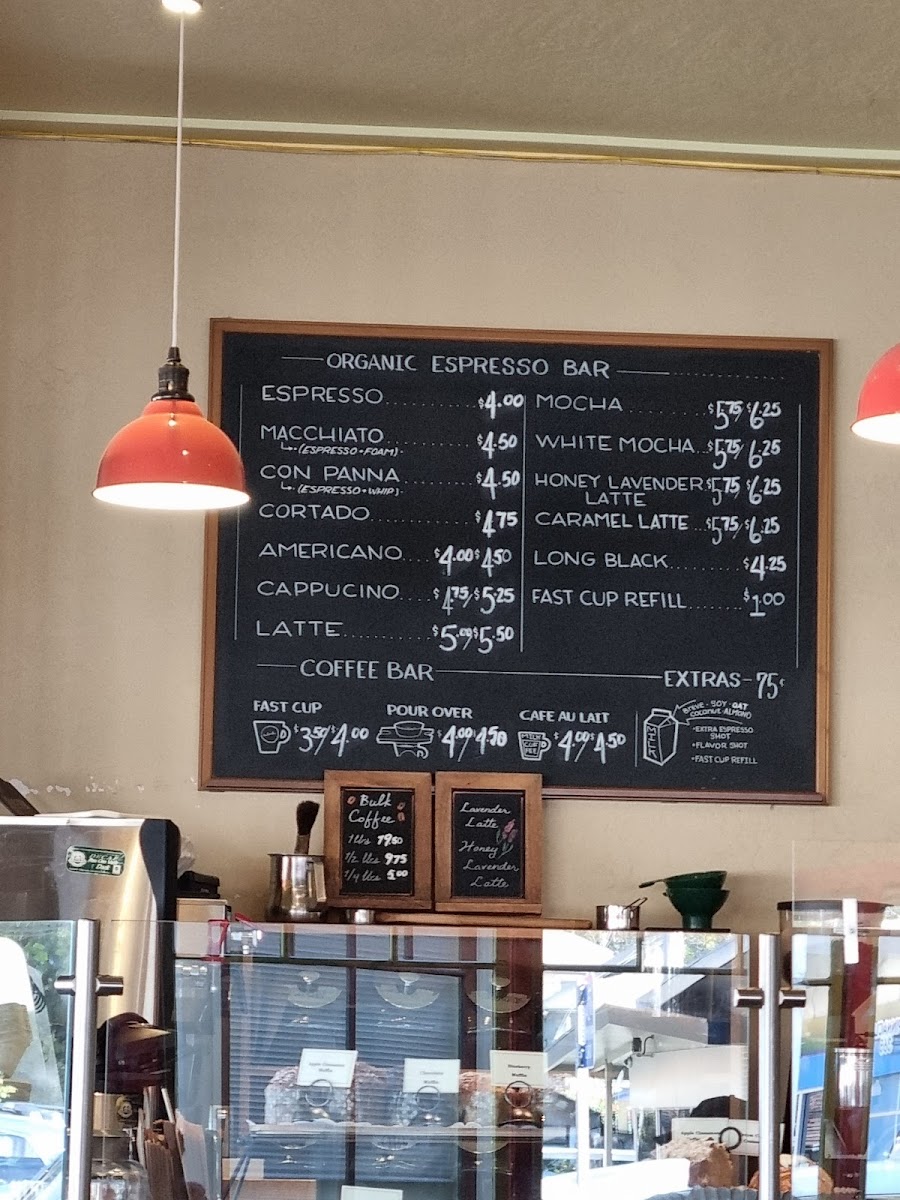 ORGANIC ESPRESSO BAR
ESPRESSO $4.00
MACCHIATO $4.50
(ESPRESSO+FOAM)
CON PANNA $4.50
(ESPRESSO+WHIP)
CORTADO $4.75
AMERICANO $4.00 $4.50
CAPPUCINO $4.75/$5.25
LATTE $5.00 $5.50
MOCHA $5.75/$6.25
WHITE MOCHA $5.75/$6.25
HONEY LAVENDER $5.75/$6.25
LATTE
CARAMEL LATTE $5.75/$6.25
LONG BLACK $4.25
FAST CUP REFILL $1.00
COFFEE BAR
FAST CUP
$3.50/$4.00
POUR OVER
$4.00/$4.50
CAFE AU LAIT
MILK
COF
FEE
$4.00/$4.50
EXTRAS-75¢
MILK
BREVE-SOY-OAT
COCONUT-ALMOND
•EXTRA ESPRESSO
SHOT
•FLAVOR SHOT
•FAST CUP REFILL
Bulk
Coffee
1 lbs 19.50
1/2 lbs 9.75
1/4 lbs 5.00
Lavender
Latte
Honey
Lavender
Latte
Apple Cinnamon
Muffin
Chocolate
Muffin
Blueberry
Muffin